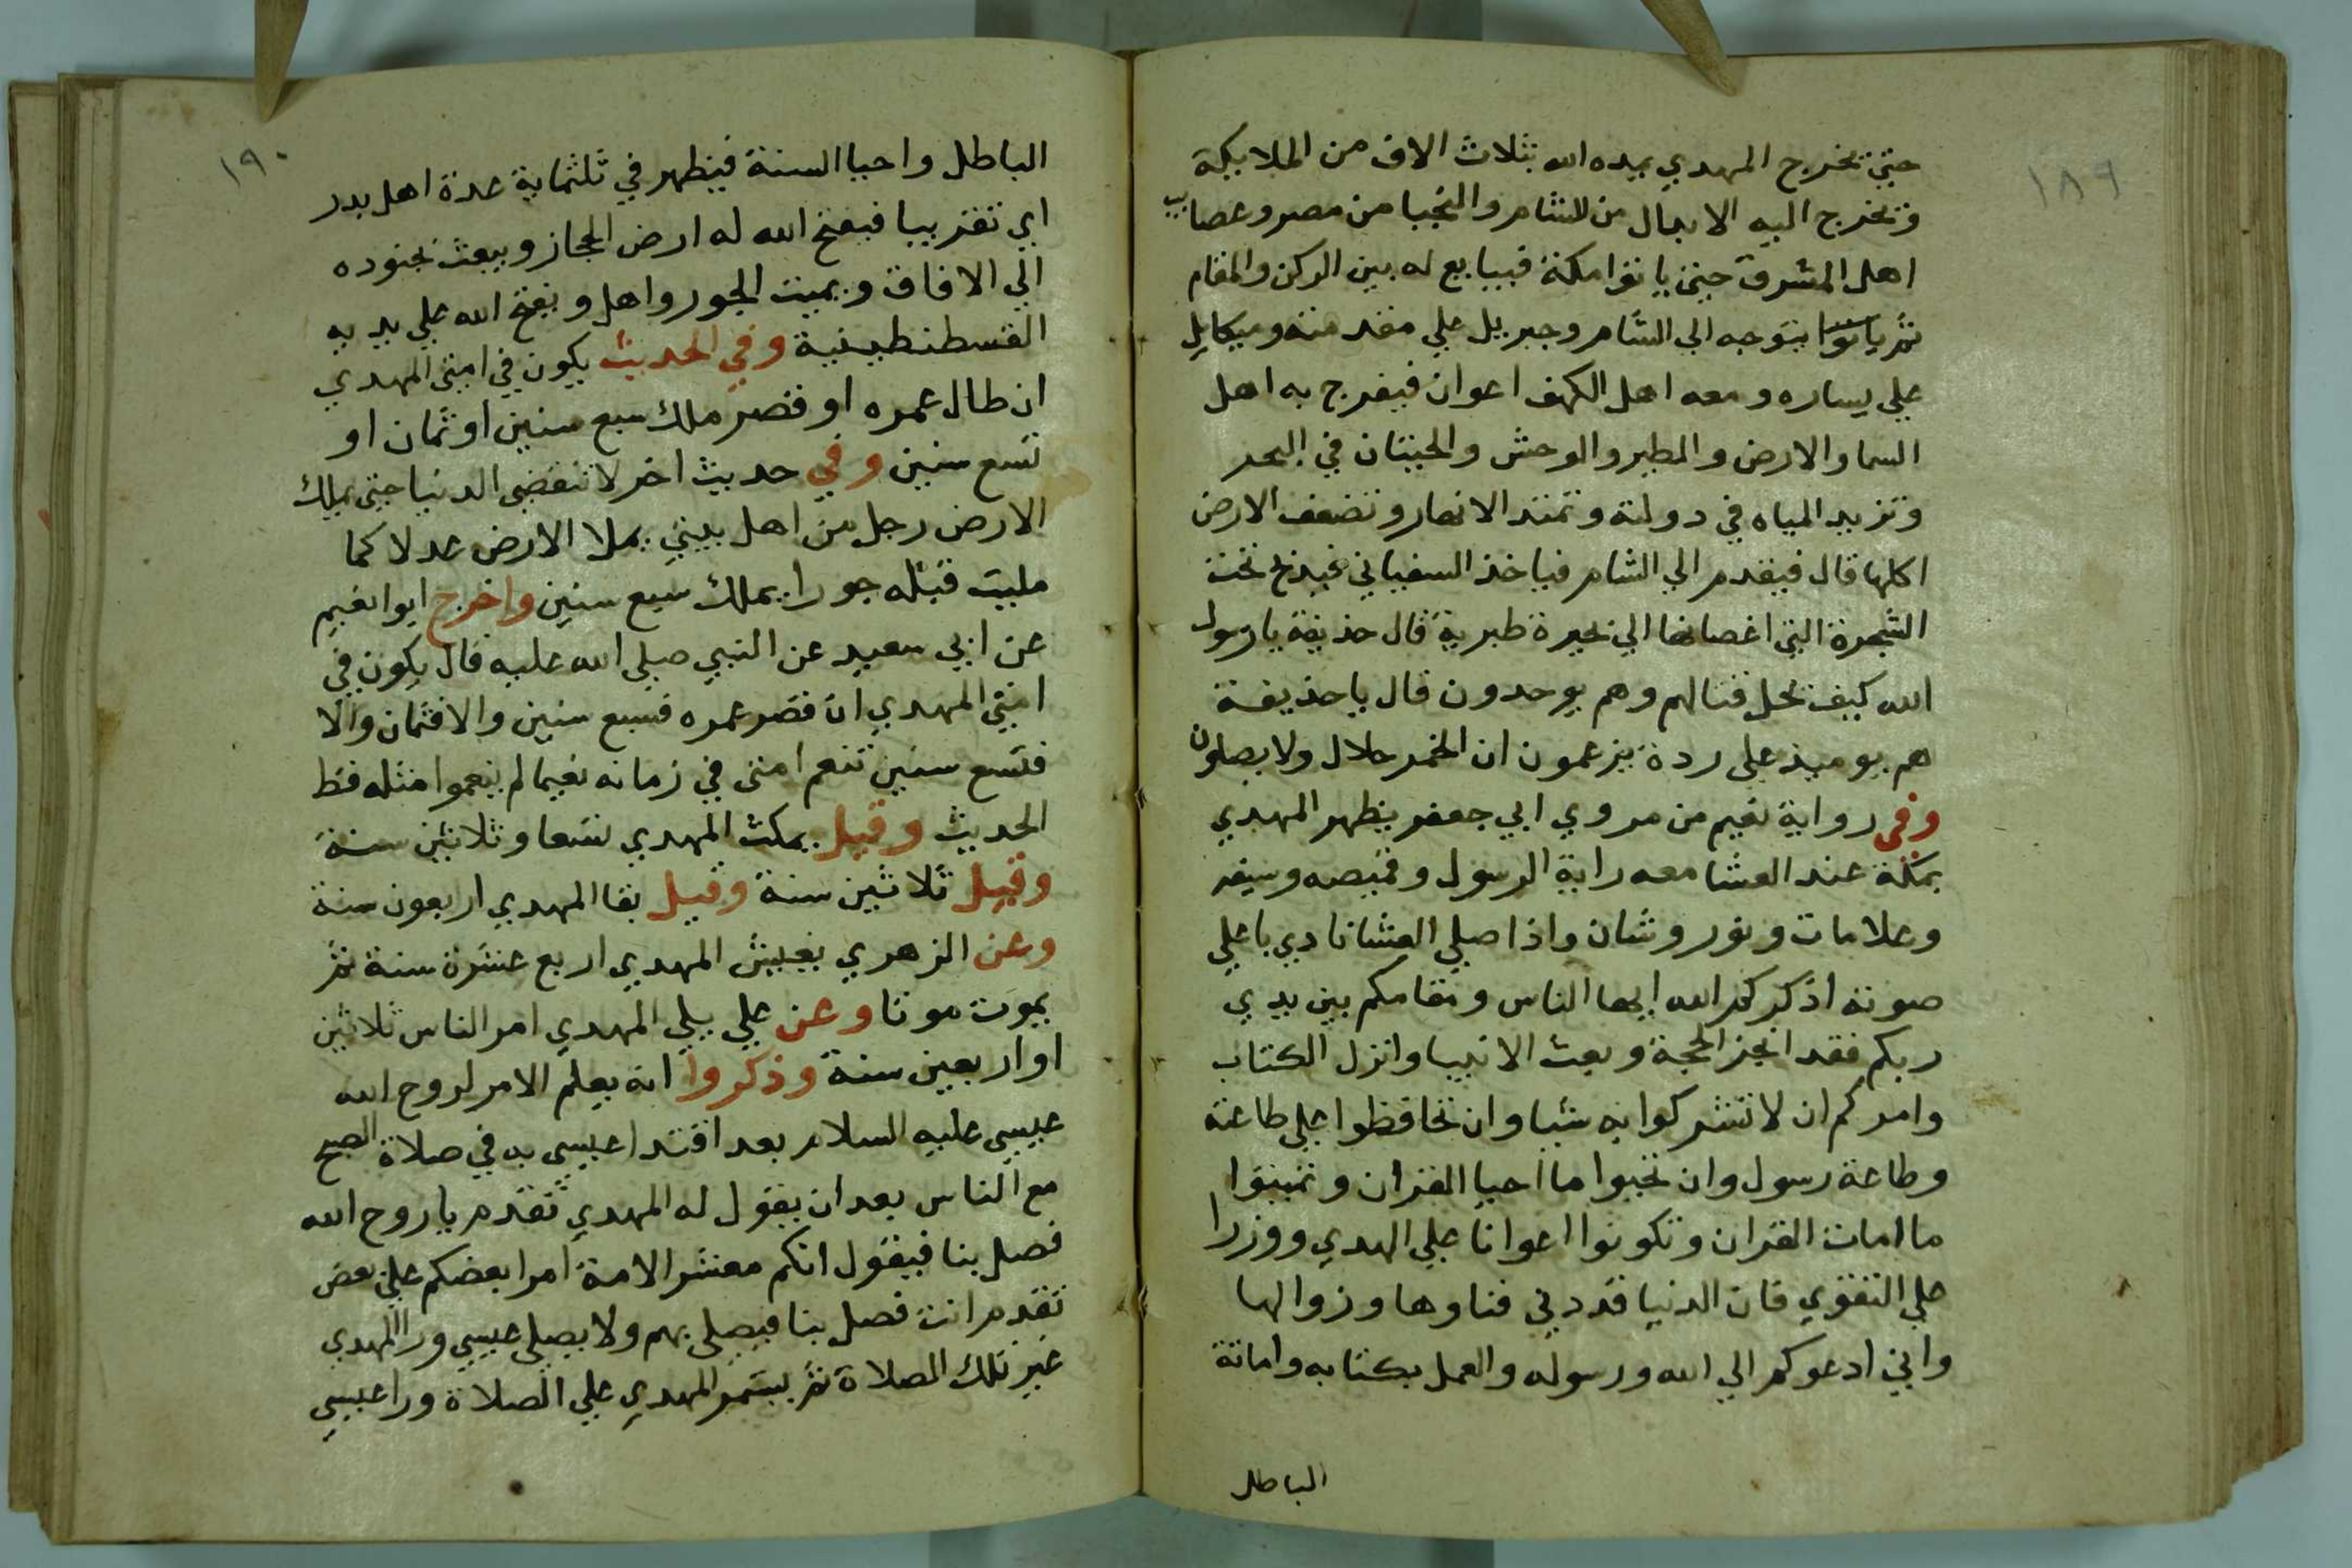 ١٨٩
حتي يخرج المهدي يمده الله بثلاث الاف من الملايكة
وتخرج اليه الابدال من الشام والنجبا من مصر وعصايب
اهل المشرق حتي ياتوا مكة فيبايع له بين الركن والمقام
ثم ياتوا يتوجه الي الشام وجبريل علي مقدمته وميكايل
علي يساره ومعه اهل الكهف اعوان فيفرح به اهل
السما والارض والطير والوحش والحيتان في البحر
وتزيد المياه في دولته وتمتد الانهار وتضعف الارض
اكلها قال فيقدم الي الشام فياخذ السفياني فيذبح تحت
الشجرة التي اغصانها الي بحيرة طبرية قال حذيفة يا رسول
الله كيف يحل قتالهم وهم يوحدون قال يا حذيفة
هم يوميذ علي ردة يزعمون ان الخمر حلال ولا يصلون
وفي رواية نعيم من مروي ابي جعفر يظهر المهدي
بمكة عند العشا معه راية الرسول وقميصه وسيفه
وعلامات ونور وشان واذا صلي العشا نادي باعلي
صوته اذكركم الله ايها الناس ومقامكم بين يدي
ربكم فقد انجز الحجة وبعث الانبيا وانزل الكتاب
وامركم ان لا تشركوا به شيا وان تحافظوا علي طاعته
وطاعة رسول وان تحيوا ما احيا القران وتميتوا
ما امات القران وتكونوا اعوانا علي الهدي ووزرا
علي التقوي فان الدنيا قد دني فناوها وزوالها
واني ادعوكم الي الله ورسوله والعمل بكتابه واماتة
الباطل
١٩٠
الباطل واحيا السنة فيظهر في ثلثماية عدة اهل بدر
اي تقريبا فيفتح الله له ارض الحجاز ويبعث بجنوده
الي الافاق ويميت الجور واهل ويفتح الله علي يديه
القسطنطينية وفي الحديث يكون في امتي المهدي
ان طال عمره او قصر ملك سبع سنين او ثمان او
تسع سنين وفي حديث اخر لا تنقضي الدنيا حتي يملك
الارض رجل من اهل بيتي يملا الارض عدلا كما
مليت قبله جورا يملك سبع سنين واخرج ابوا نعيم
عن ابي سعيد عن النبي صلي الله عليه قال يكون في
امتي المهدي ان قصر عمره فسبع سنين والا فثمان والا
فتسع سنين تنعم امتي في زمانه نعيما لم ينعموا مثله قط
الحديث وقيل يمكث المهدي تسعا وثلاثين سنة
وقيل ثلاثين سنة وقيل بقا المهدي اربعون سنة
وعن الزهري يعيش المهدي اربع عشرة سنة ثم
يموت موتا وعن علي يلي المهدي امر الناس ثلاثين
او اربعين سنة وذكروا انه يعلم الامر لروح الله
عيسي عليه السلام بعد اقتدا عيسي به في صلاة الصبح
مع الناس بعد ان يقول له المهدي تقدم يا روح الله
فصل بنا فيقول انكم معشر الامة امرا بعضكم علي بعض
تقدم انت فصل بنا فيصلي بهم ولا يصلي عيسي ورا المهدي
غير تلك الصلاة ثم يستمر المهدي علي الصلاة ورا عيسي